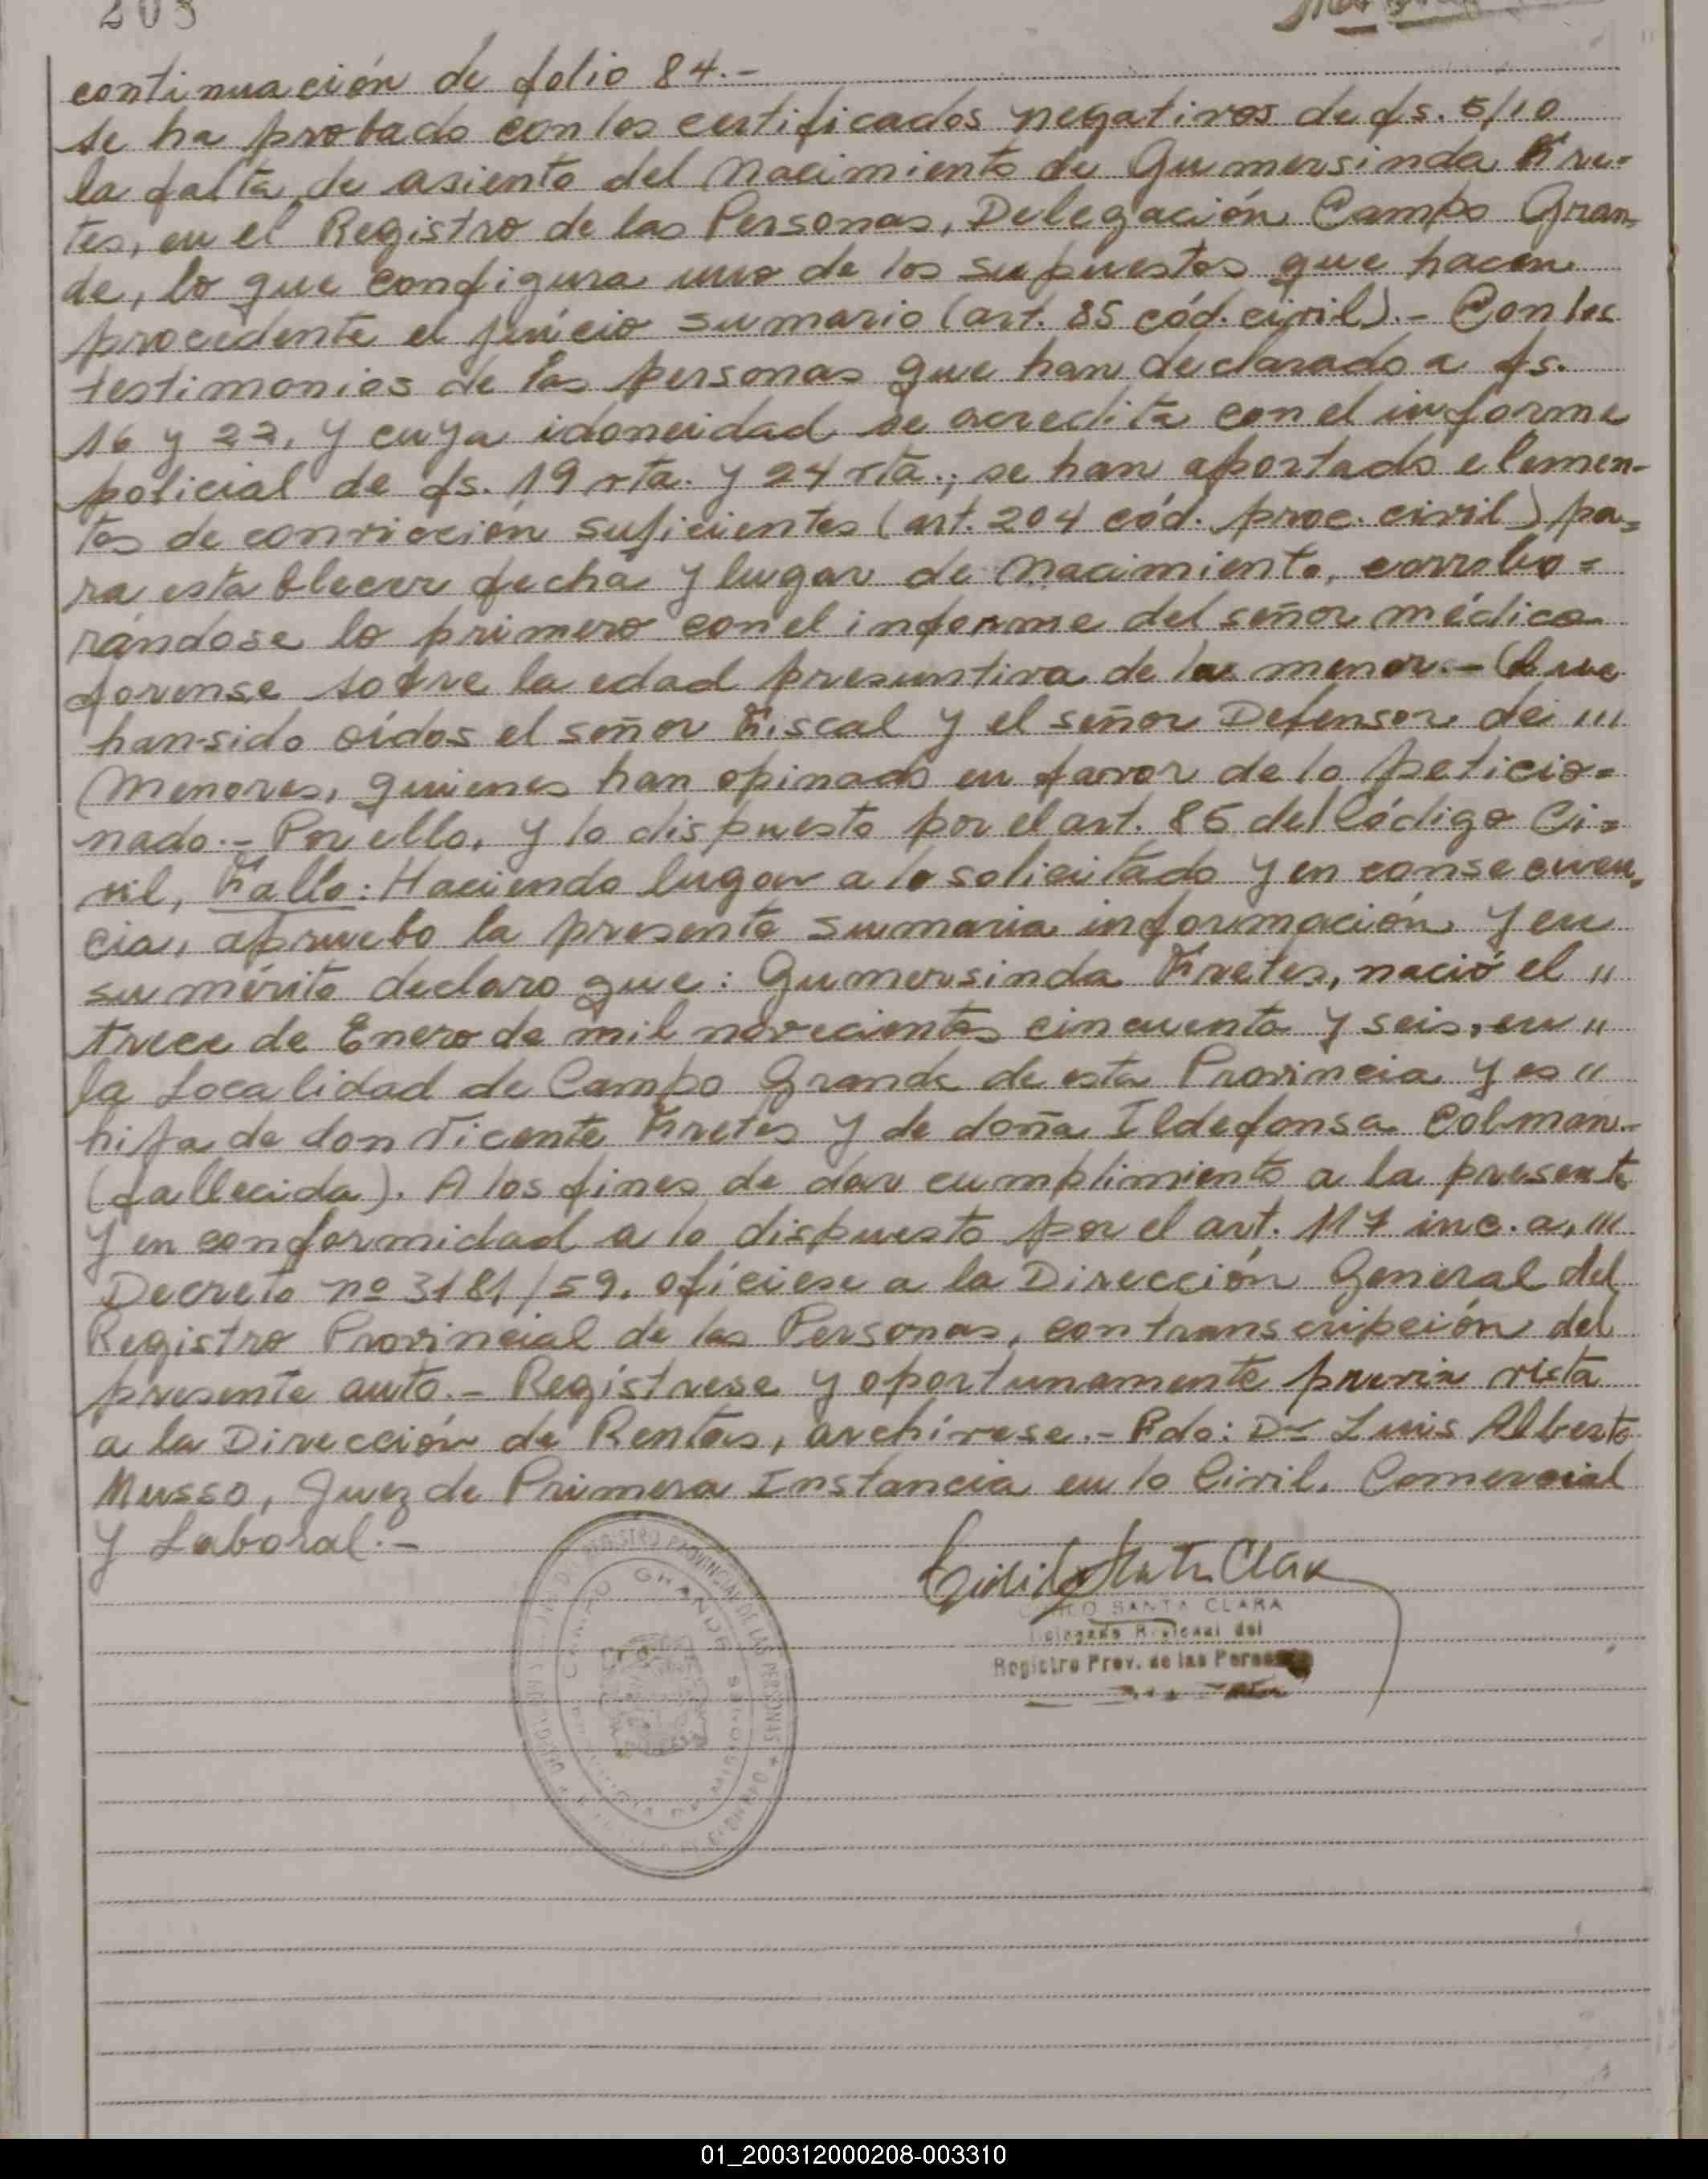 203
continuación de folio 84.-
se ha probado con los certificados negativos de fs. 5/10
la falta de asiento del Nacimiento de Gumersinda Fre-
tes, en el Registro de las Personas, Delegación Campo Gran-
de, lo que configura uno de los supuestos que hacen
procedente el juicio sumario (art. 85 cód. civil).- Con los
testimonios de las personas que han declarado a fs.
16 y 22, y cuya idoneidad se acredita con el informe
policial de fs. 19 vta. y 24 vta.; se han aportado elemen-
tos de convicción suficientes (art. 204 cód. proc. civil) pa=
ra establecer fecha y lugar de Nacimiento, corrobo=
rándose lo primero con el informe del señor médico
forense sobre la edad presuntiva de la menor.- Que
han sido oídos el señor Fiscal y el señor Defensor de ///
Menores, quienes han opinado en favor de lo peticio=
nado.- Por ello, y lo dispuesto por el art. 86 del Código Ci=
vil, Fallo: Haciendo lugar a lo solicitado y en consecuen-
cia, apruebo la presente sumaria información y en
su mérito declaro que: Gumersinda Fretes, nació el "
trece de Enero de mil novecientos cincuenta y seis, en "
la Localidad de Campo Grande de esta Provincia y es "
hija de don Vicente Fretes y de doña Ildefonsa Colman.-
(fallecida). A los fines de dar cumplimiento a la presente
y en conformidad a lo dispuesto por el art. 117 inc. a, ///
Decreto nº 3181/59. ofíciese a la Dirección General del
Registro Provincial de las Personas, con transcripción del
presente auto.- Regístrese y oportunamente previa vista
a la Dirección de Rentas, archívese.- Fdo: Dr Luis Alberto
Musso, Juez de Primera Instancia en lo Civil, Comercial
y Laboral.-
REGISTRO PROVINCIAL DE LAS PERSONAS
CAMPO GRANDE
SANTA CLARA
Delegado Regional del
Registro Prov. de las Personas
01_200312000208-003310